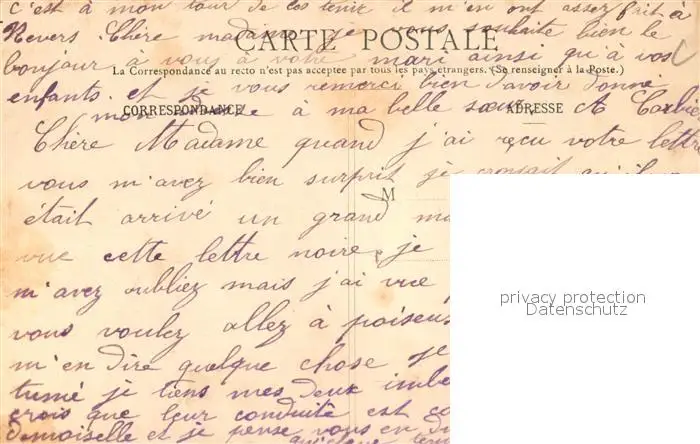 c'est à mon tour de les tenir il m'en ont assez fait à
Nevers. Chère madame je vous souhaite bien le
CARTE POSTALE
bonjour à vous à votre mari ainsi qu'à vos
La Correspondance au recto n'est pas acceptée par tous les pays étrangers. (Se renseigner à la Poste.)
enfants. et je vous remerci bien d'avoir donné
CORRESPONDANCE
ADRESSE
mon à ma belle sœur A
Chère Madame quand j'ai reçu votre lettre
vous m'avez bien surpris je croyait qu'il
M
était arrivé un grand
vue cette lettre noire, je
m'avez oubliez mais j'ai vue
privacy protection
Datenschutz
vous voulez allez à
m'en dire quelque chose je
tumé je tiens mes deux
crois que leur conduite est
demoiselle et je pense vous en
quelque